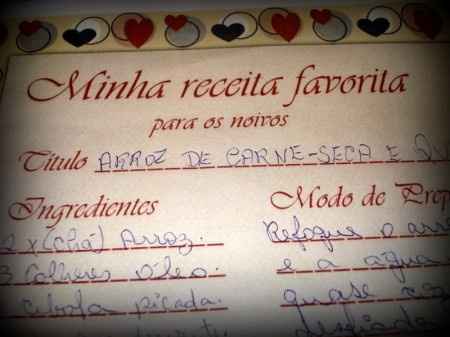 Minha receita favorita
para os noivos
Título ARROZ DE CARNE-SECA E
Ingredientes
x (chá) Arroz.
3 Colheres óleo.
Cebola picada.
Modo de
Refogue o
e a água
quase
desfiada